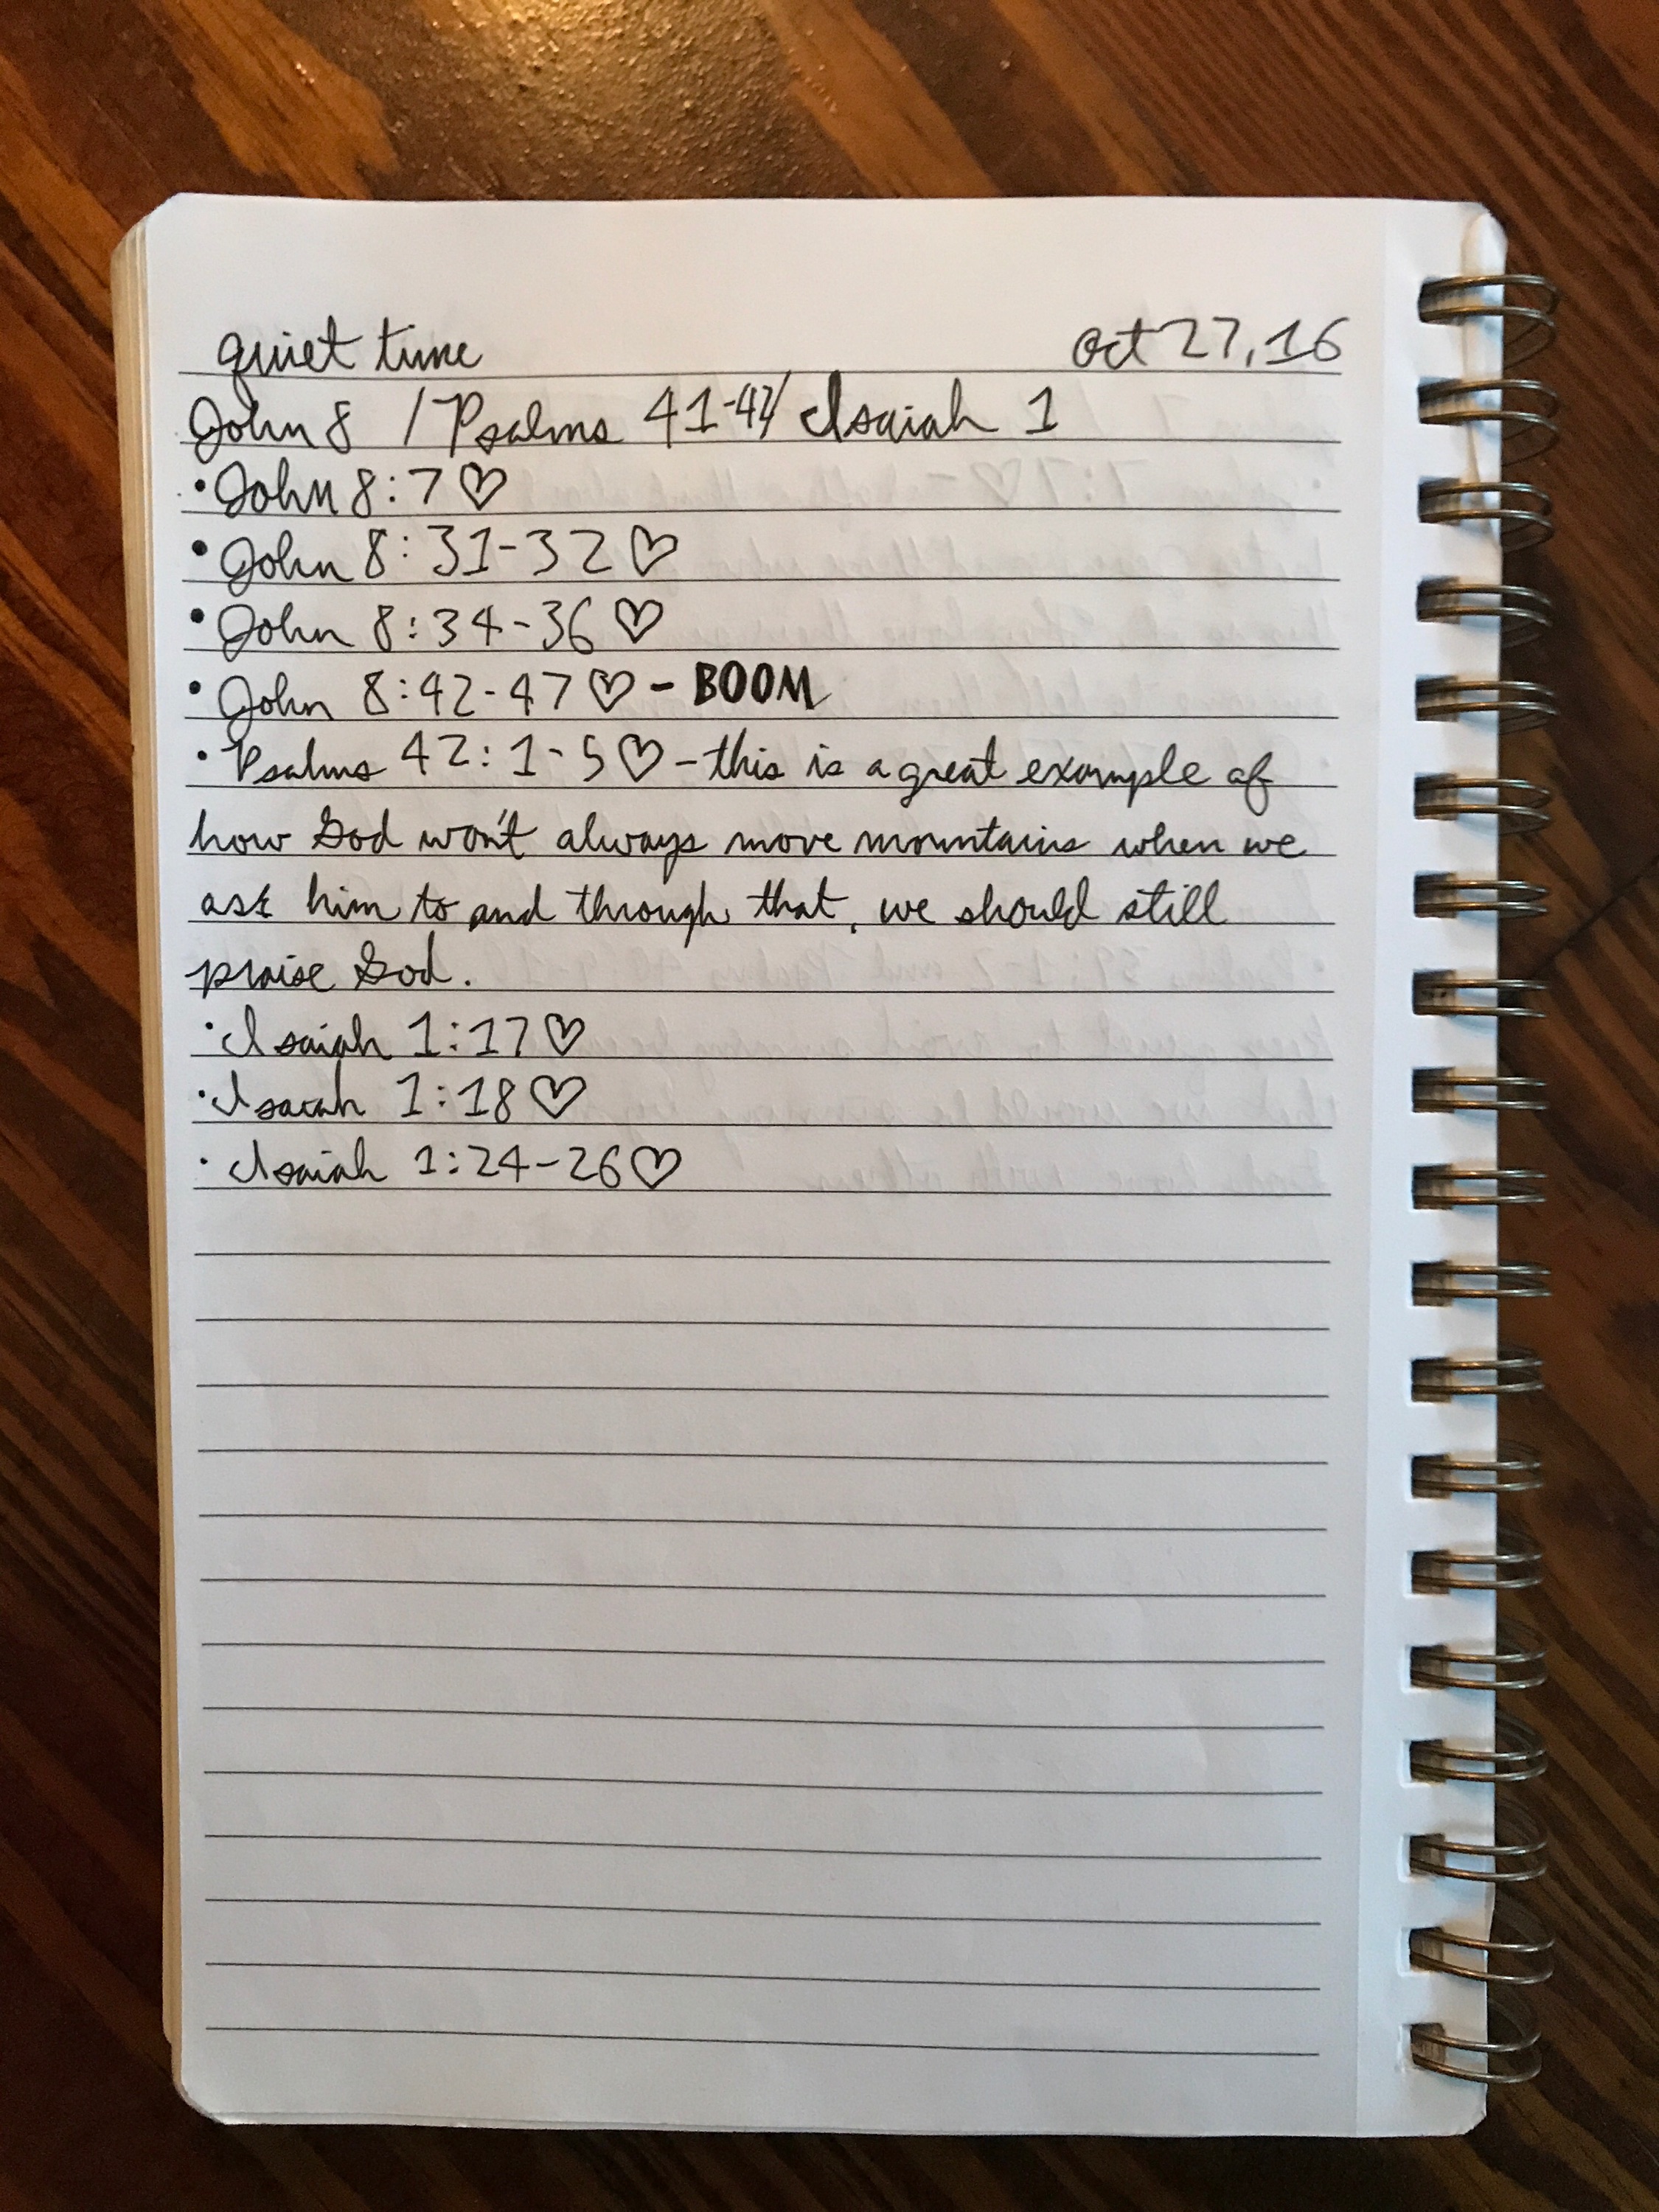 quiet time oct 27, 16
John 8 / Psalms 41-42/ Isaiah 1
• John 8:7 ♡
• John 8:31-32 ♡
• John 8:34-36 ♡
• John 8:42-47 ♡ - BOOM
• Psalms 42:1-5 ♡ - this is a great example of
how God won't always move mountains when we
ask him to and through that, we should still
praise God.
• Isaiah 1:17 ♡
• Isaiah 1:18 ♡
• Isaiah 1:24-26 ♡